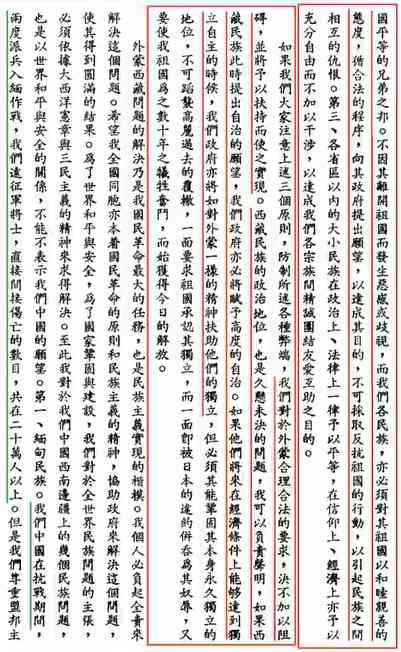 國平等的兄弟之邦。不因其離開祖國而發生惡感或歧視，而我們各民族，亦必須對其祖國以和睦親善的
態度，循合法的程序，向其政府提出願望，以達成其目的，不可採取反抗祖國的行動，以引起民族之間
相互的仇恨。第三、各省區以內的大小民族在政治上、法律上一律予以平等，在信仰上、經濟上亦予以
充分自由而不加以干涉，以達成我們各宗族間精誠團結友愛互助之目的。
如果我們大家注意上述三個原則，防制所述各種弊端，我們對於外蒙合理合法的要求，決不加以阻
碍，並將予以扶持而使之實現。西藏民族的政治地位，也是久懸未決的問題，我可以負責聲明，如果西
藏民族此時提出自治的願望，我們政府亦必將賦予高度的自治。如果他們將來在經濟條件上能夠達到獨
立自主的時候，我們政府亦將如對外蒙一樣的精神扶助他們的獨立，但必須其能鞏固其本身永久獨立的
地位，不可蹈襲高麗過去的覆轍，一面要求祖國承認其獨立，而一面卽被日本的違約併吞爲其奴辱，又
要使我祖國爲之數十年之犧牲奮鬥，而始獲得今日的解放。
外蒙西藏問題的解決乃是我國民革命最大的任務，也是民族主義實現的楷模。我個人必負起全責來
解決這個問題。希望我全國同胞亦本着國民革命的原則和民族主義的精神，協助政府來解決這個問題，
使其得到圓滿的結果。爲了世界和平與安全，爲了國家鞏固與建設，我們對於全世界民族問題的主張，
必須依據大西洋憲章與三民主義的精神來求得解決。至此我對於我們中國西南邊疆上的幾個民族問題，
也是以世界和平與安全的關係，不能不表示我們中國的願望。第一、緬甸民族。我們中國在抗戰期間，
兩度派兵入緬作戰，我們遠征軍將士，直接間接傷亡的數目，共在二十萬人以上。但是我們尊重盟邦主